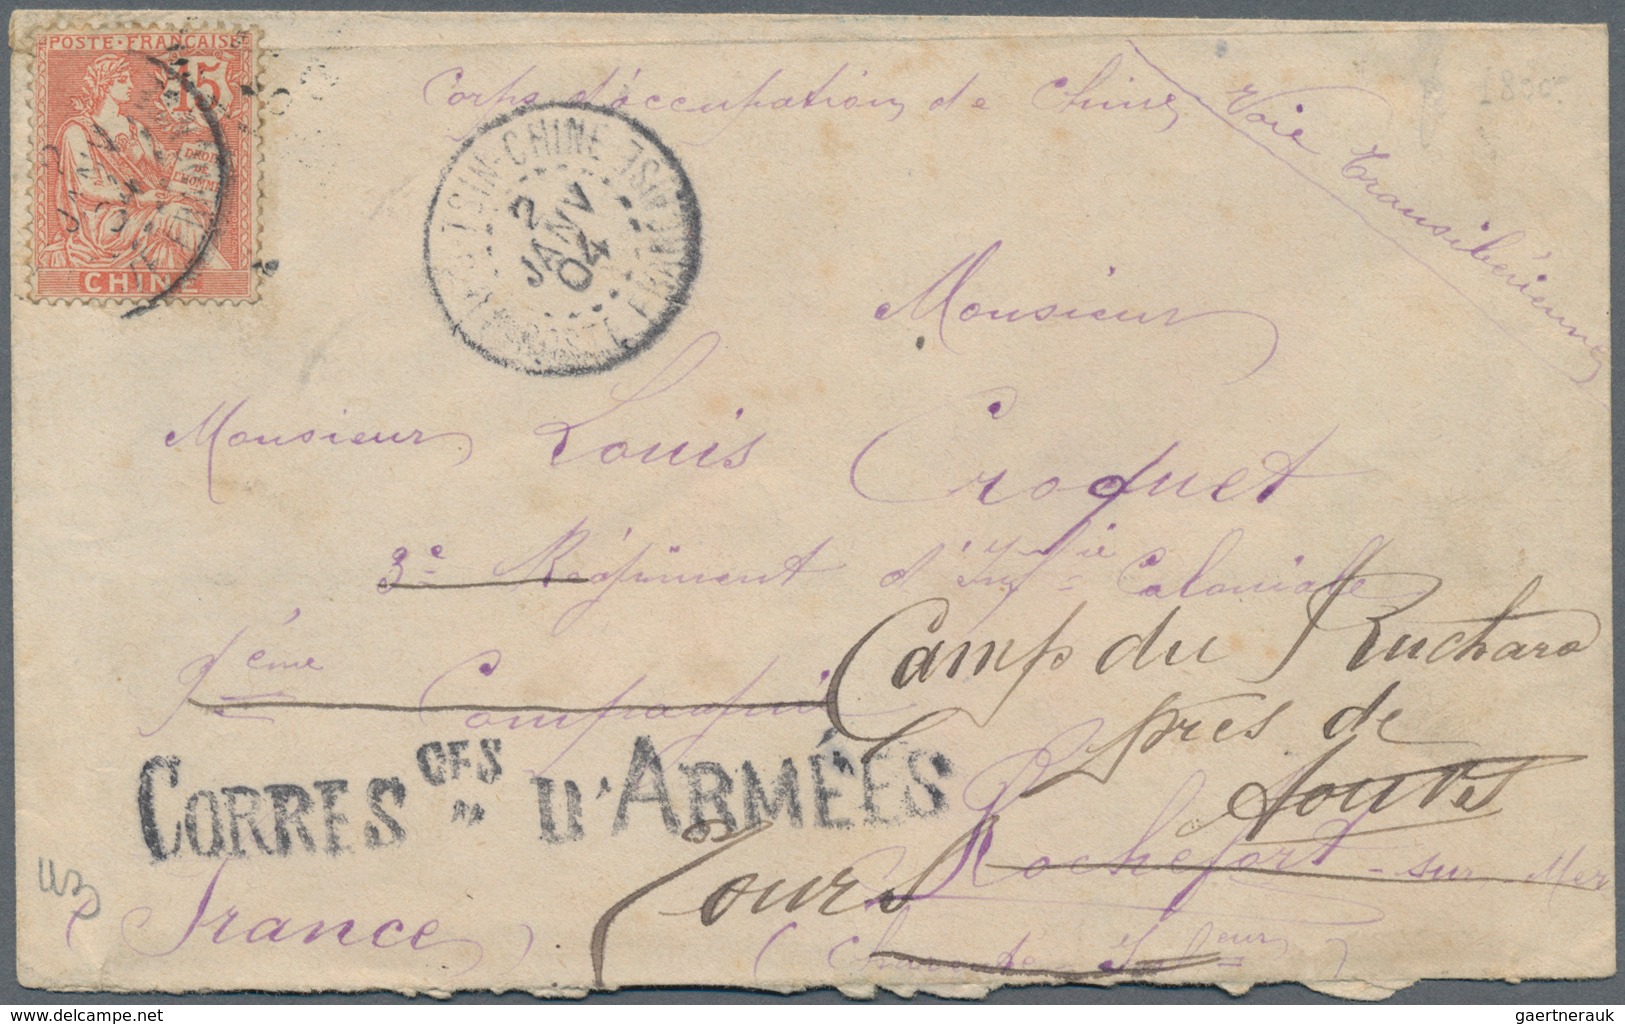 POSTE·FRANÇAISE
15
DROITS
DE
L'HOMME
CHINE
2
JANV
04
TSIN-CHINE
2
JANV
04
POSTE FRANÇAISE
Corps d'occupation de Chine
Voie transibérienne
Monsieur
Monsieur Louis Croquet
3e Régiment d'Infie Coloniale
9ème Compagnie
Camp du Ruchard
près de
Tours
CORRESCES D'ARMÉES
Tours
Rochefort-sur-Mer
France
(Charente Inféleur)
gaertnerauk